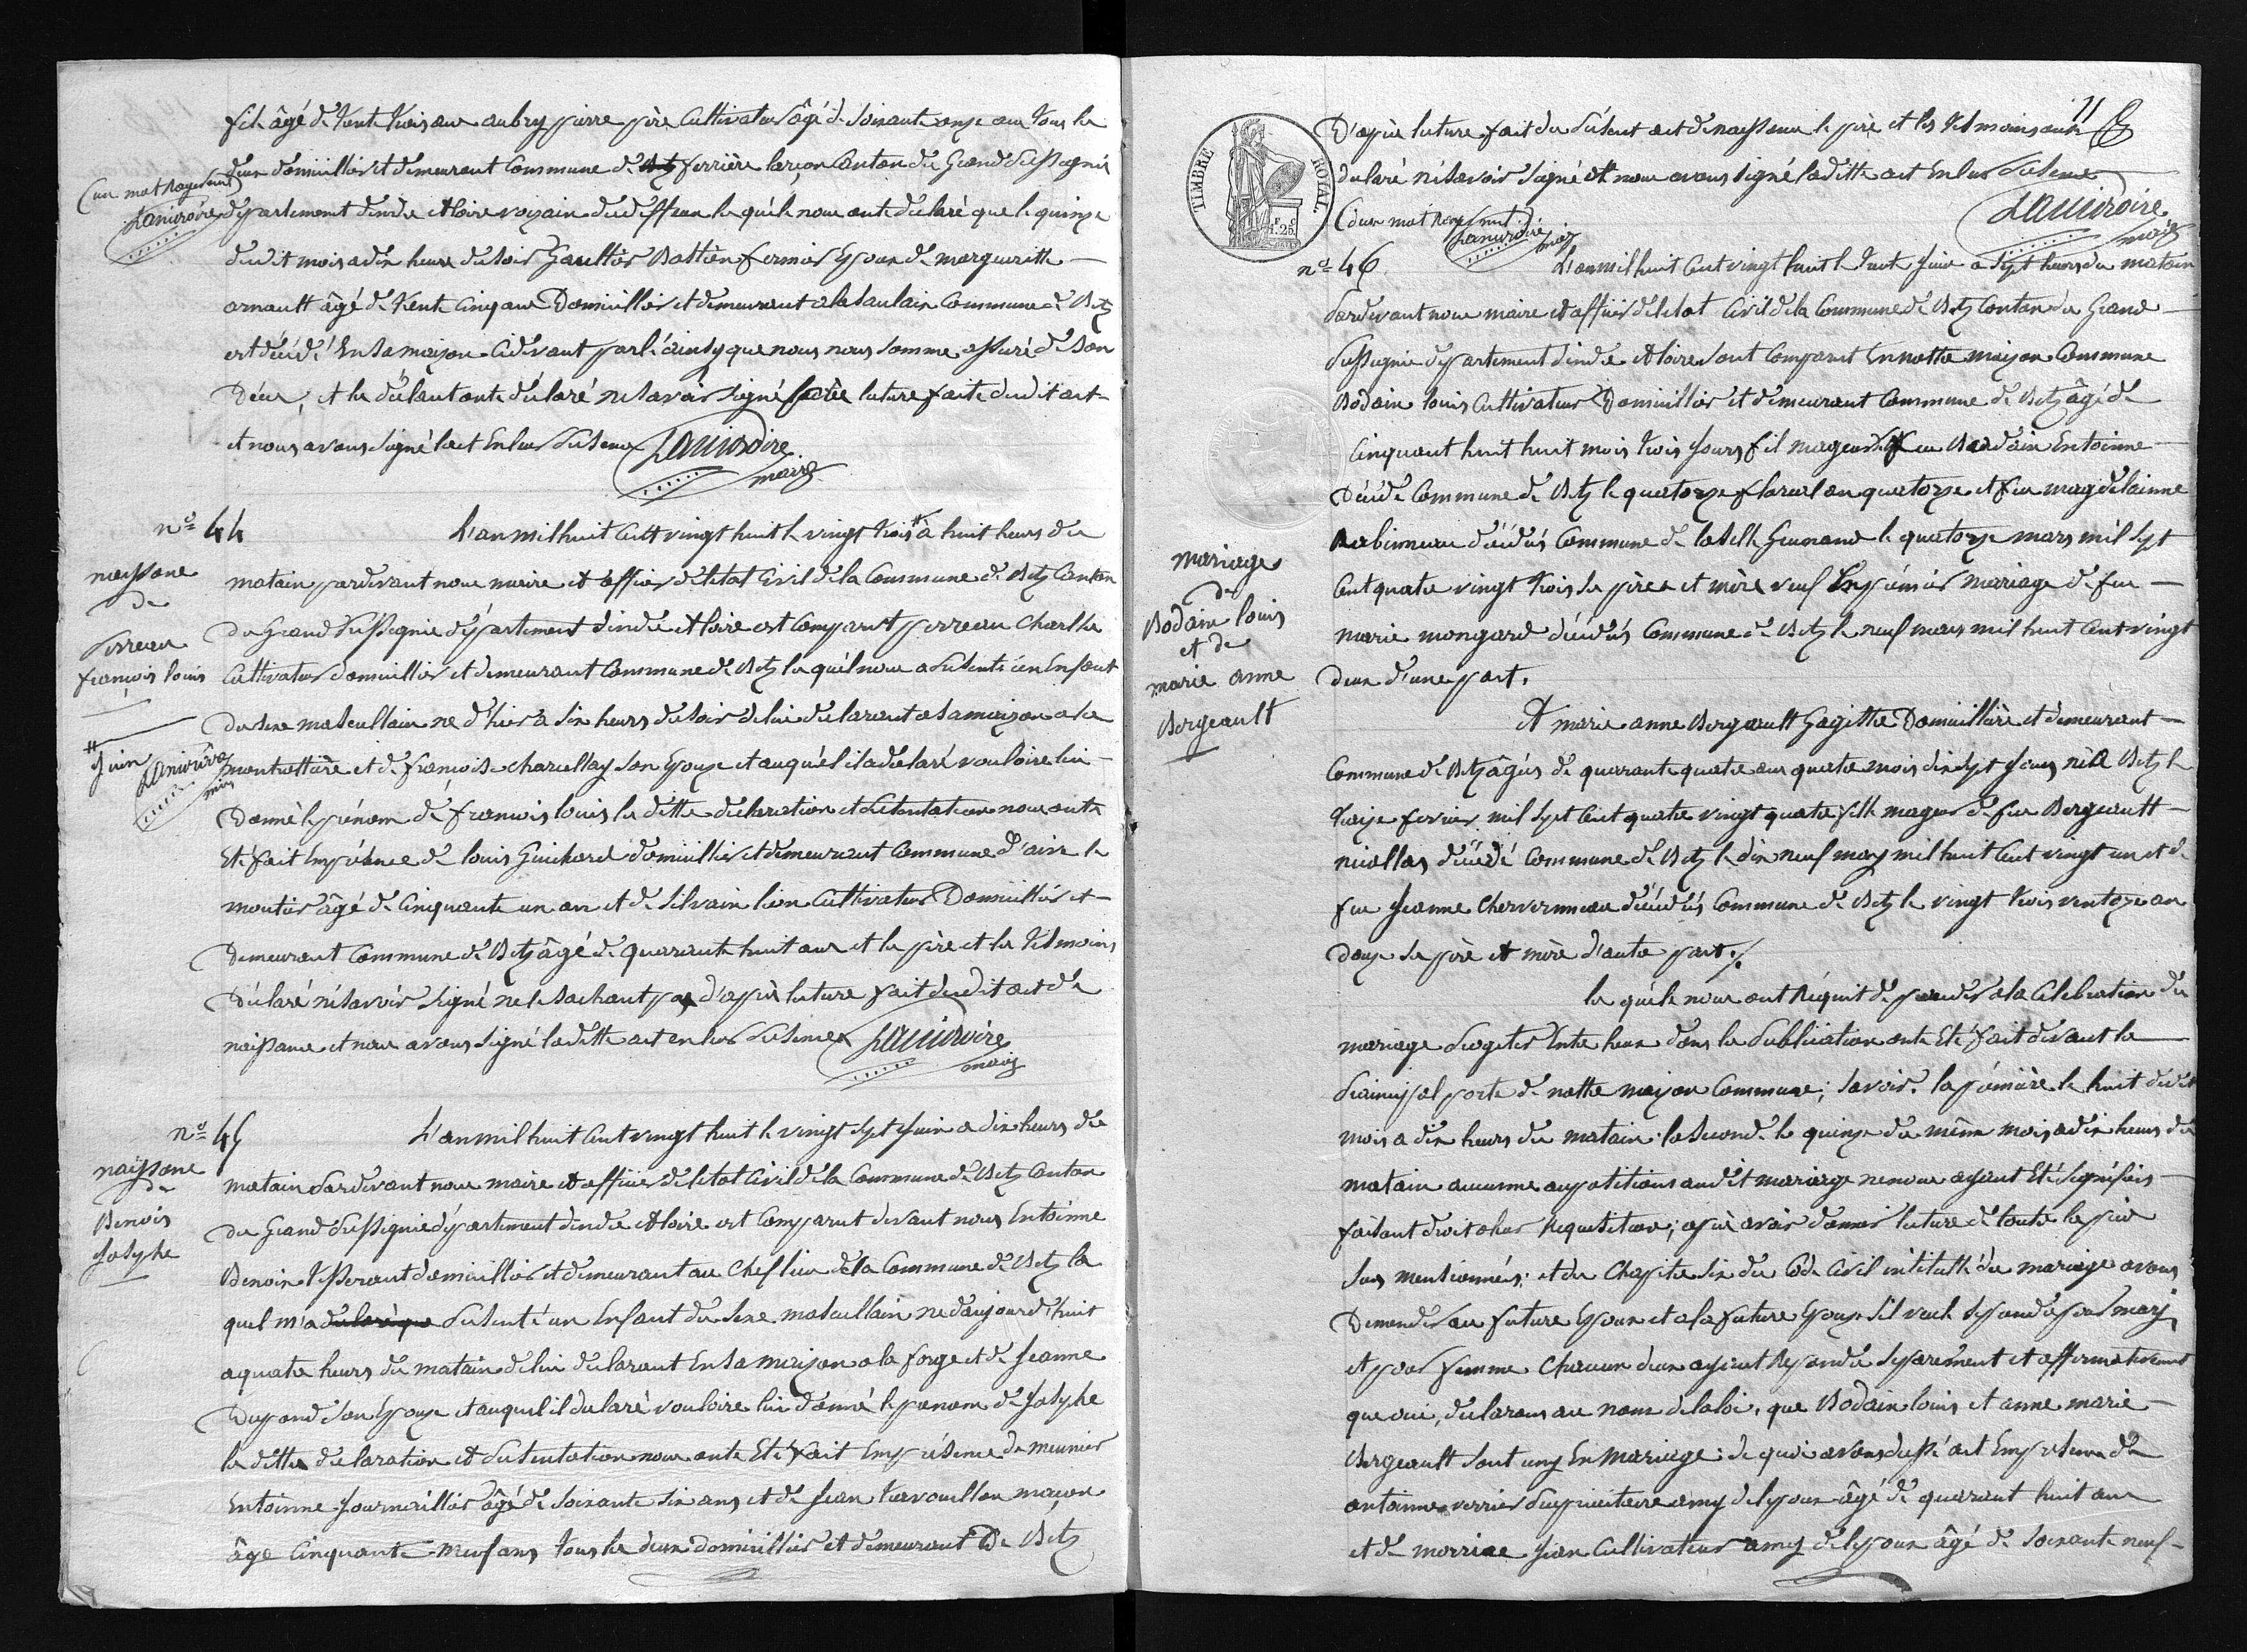 fils âgé de trente trois ans aubry pierre père Cultivateur âgé de soixante onze ans tous les
deux domicillier et demeurant Commune de ferrière larçon Canton du Grand Pressignié
(un mot Rayé nul
Lanuroire
département dindre et Loire voyain du deffeun le quèle nous onte déclaré que le quinze
dudit mois a dix heure du soir Gaultier Bastien fermier Epoux de margueritte
arnault âgé de trente Cinq ans Domicillier et demeurant a la Saulais Commune de Betz
est décédé En sa maizon Cidevant parlé ainsy que nous nous somme assuré de son
Décés, et les déclarant onte déclaré ne savoir signé lecture faite dudit act
et nous avons signé lact En leur présence Lanuroire
maire
nº 44
L'an mil huit Cent vingt huit le vingt trois # à huit heurs du
naissance
de
perreau
françois louis
# Juin
Lanuroire
maire
matain pardevant nous maire et officier de létat Civil de la Commune de Betz Canton
du Grand Préssignié département dindre et Loire est Comparut perreau Charlle
Cultivateur domicillier et demeurant Commune de Betz le quèl nous a présenté un Enfant
du sexe masculain né d'hier à six heurs du soir de lui déclarant a sa maizon a la
et de françoise charcellay son Epouze et auquél il a déclaré vouloire lui
Donné le prénom de françois louis les ditte déclaration et présentation nous onte
Eté fait En présence de louis Guichard domicillier et demeurant Commune d'
moutier âgé de Cinquante un an et de silvain lion Cultivateur Domicillier et
Demeurant Commune de Betz âgé de quarante huit ans et le père et les témoins
Déclaré né savoir signé ne le sachant pas d'après lecture fait dudit act de
naissance et nous avons signé la ditte act en leur présence Lanuroire
maire
nº 45
L'an mil huit Cent vingt huit le vingt sept Juin a dix heurs du
naissance
de
Benois
Josephe
matain pardevant nous maire et officier de létat Civil de la Commune de Betz Canton
du Grand Préssignié département dindre et Loire est Comparut devant nous Entoinne
Benoix Tisserant domicillier et demeurant au Chef lieu de la Commune de Betz le
quel m'a déclaré que présenté un Enfant du sexe masculain né d'aujourd'huit
a quatre heurs du matain de lui déclarant En sa maizon a la forge et de Jeanne
Dupond son Epouze et auquel il déclaré vouloire lui donné le prenom de Josephe
le ditte déclaration et présentation nous onte Eté fait En présence de meunier
Entoinne Journaillier âgé de soixante six ans et de Jean maçon
âge Cinquante neuf ans tous les deux domicillier et demeurant De Betz
11
TIMBRE ROYAL.
1. 25.
D'après lecture fait du présent act de naissance le père et les témoins
déclaré né savoir signé et nous avons signé laditte act En leur présence
(d'un mot Rayé nul
Lanuroire
maire
Lanuroire
maire
nº 46
L'an mil huit Cent vingt huit le trente Juin a sept heurs du matain
pardevant nous maire et officier de létat Civil de la Commune de Betz Canton du Grand
Préssignié département dindre et Loire sont Comparut En notte maizon Commune
Bodain louis Cultivateur Domicillier et demeurant Commune de Betz âgé de
Cinquant huit huit mois trois jours fil mageur de feu Bodain Entoinne
Décédé Commune de Betz le quatorze floreal an quatorze et feu magdélainne
Rabinneau décédés Commune de la selle Guenand le quatorze mars mil sept
Cent quatre vingt trois ses père et mère veuf En prémier mariage de feu
marie mongard décédés Commune de Betz le neuf mars mil huit Cent vingt
deux d'une part.
mariage
de
Bodain louis
et de
marie anne
Bergeault
Et marie anne Bergeault Gagitte Domicillière et demeurant
Commune de Betz âgés de quarante quatre ans quatre mois dix sept jours né à Betz le
treize fevrier mil sept Cent quatre vingt quatre fille mageur de feu Bergeault
nicollas décédé Commune de Betz le dix neuf may mil huit Cent vingt un et de
feu Jeanne Cherverneau décédés Commune de Betz le vingt trois ventoze an
douze ses père et mère d'autre part./.
les quèle nous ont Réquit de procéder a la Célébration du
mariage progeter Entre heux dons les publication onte Eté fait devant la
prainsipal porte de notte maizon Commune; savoir. la prémière le huit dudit
mois a dix heurs du matain la seconde le quinze du même mois a dix heurs du
matain aucunne aupositions audit mariage ne nous ayant Eté signifiés
faisant droit a leur Requisition; après avoir donner lecture de toutes les pièce
sus mentionnés; et du Chapitre six du Code Civil intitullé du mariage avons
Demander au future Epoux et a la future Epouze s'il veule se prandre pour mari
et pour femme Chacun d'eux ayant Repondu séparément et affirmativement
que oui, déclarons au nom de la loi, que Bodain louis et anne marie
Bergeault sont uny En Mariage: de quoi avons dressé act En présence de
antoinne verrier propriaitaire amy de lepoux âgé de quarant huit ans
et de Jean Cultivateur amy de lepoux âgé de soixante neuf